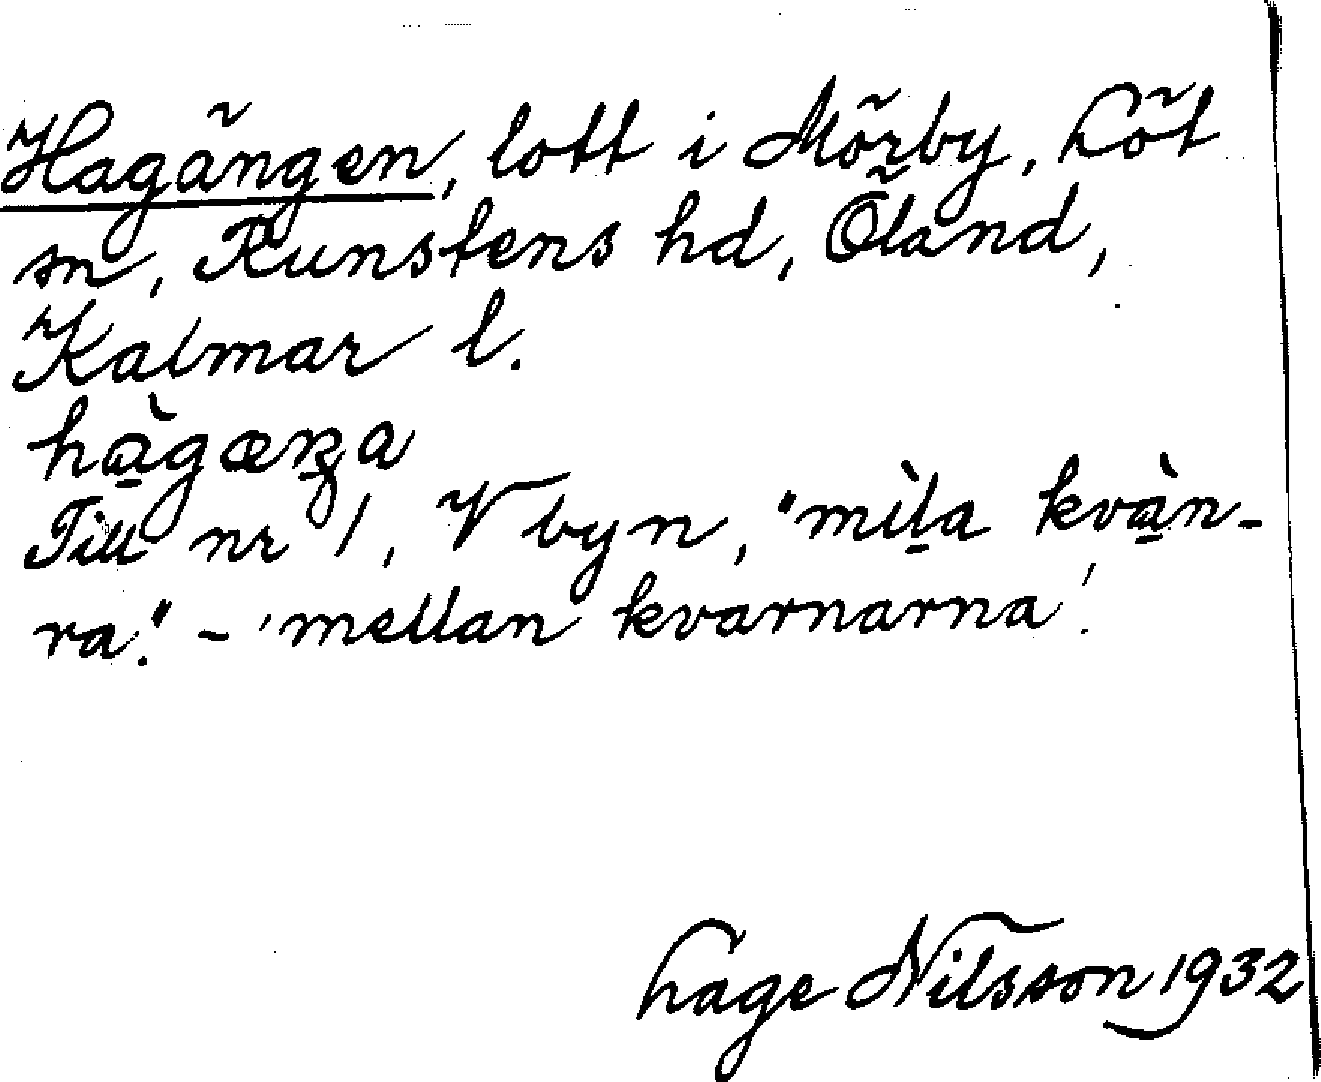 Hagängen, lott i Mörby, Löt
sn, Runstens hd, Öland,
Kalmar l.
hà̱gæŋa
Till nr 1, V byn, "mìḻa kvà̱n-
ra." - 'mellan kvarnarna'.
Lage Nilsson 1932